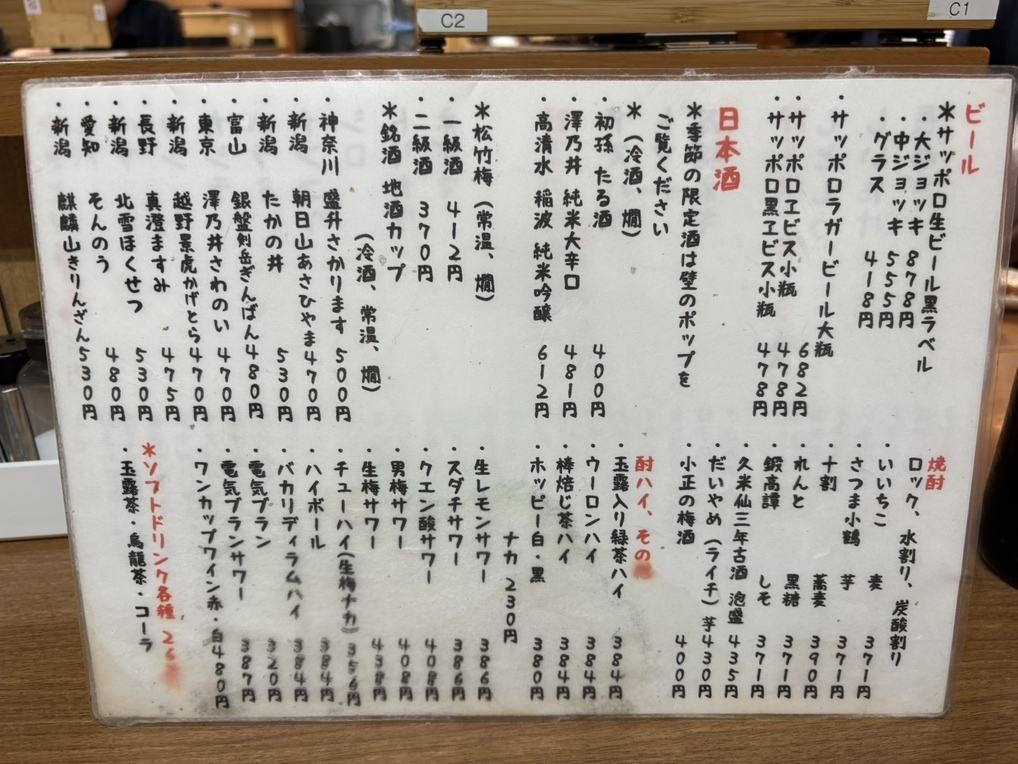 C2
C1
ビール
*サッポロ生ビール黒ラベル
・大ジョッキ 878円
・中ジョッキ 555円
・グラス 418円
・サッポロラガービール大瓶 682円
・サッポロヱビス小瓶 478円
・サッポロ黒ヱビス小瓶 478円
日本酒
*季節の限定酒は壁のポップを
ご覧ください
*(冷酒、燗)
・初孫 たる酒 400円
・澤乃井 純米大辛口 481円
・高清水 稲波 純米吟醸 612円
*松竹梅(常温、燗)
・一級酒 412円
・二級酒 370円
*銘酒 地酒カップ
(冷酒、常温、燗)
・神奈川 盛升さかります 500円
・新潟 朝日山あさひやま 470円
・新潟 たかの井 530円
・富山 銀盤剣岳ぎんばん 480円
・東京 澤乃井さわのい 470円
・新潟 越野景虎かげとら 470円
・長野 真澄ますみ 475円
・新潟 北雪ほくせつ 530円
・愛知 そんのう 480円
・新潟 麒麟山きりんざん 530円
焼酎
ロック、水割り、炭酸割り
・いいちこ 麦 371円
・さつま小鶴 芋 371円
・十割 蕎麦 390円
・れんと 黒糖 371円
・鍛高譚 しそ 371円
・久米仙三年古酒 泡盛 435円
・だいやめ(ライチ)芋 430円
・小正の梅酒 400円
酎ハイ、その
・玉露入り緑茶ハイ 384円
・ウーロンハイ 384円
・棒焙じ茶ハイ 384円
・ホッピー白・黒 380円
ナカ 230円
・生レモンサワー 386円
・スダチサワー 386円
・クエン酸サワー 408円
・男梅サワー 408円
・生梅サワー 438円
・チューハイ(生梅ナカ) 356円
・ハイボール 384円
・バカリディラムハイ 384円
・電気ブラン 320円
・電気ブランサワー 387円
・ワンカップワイン赤・白 480円
*ソフトドリンク各種 26
・玉露茶・烏龍茶・コーラ